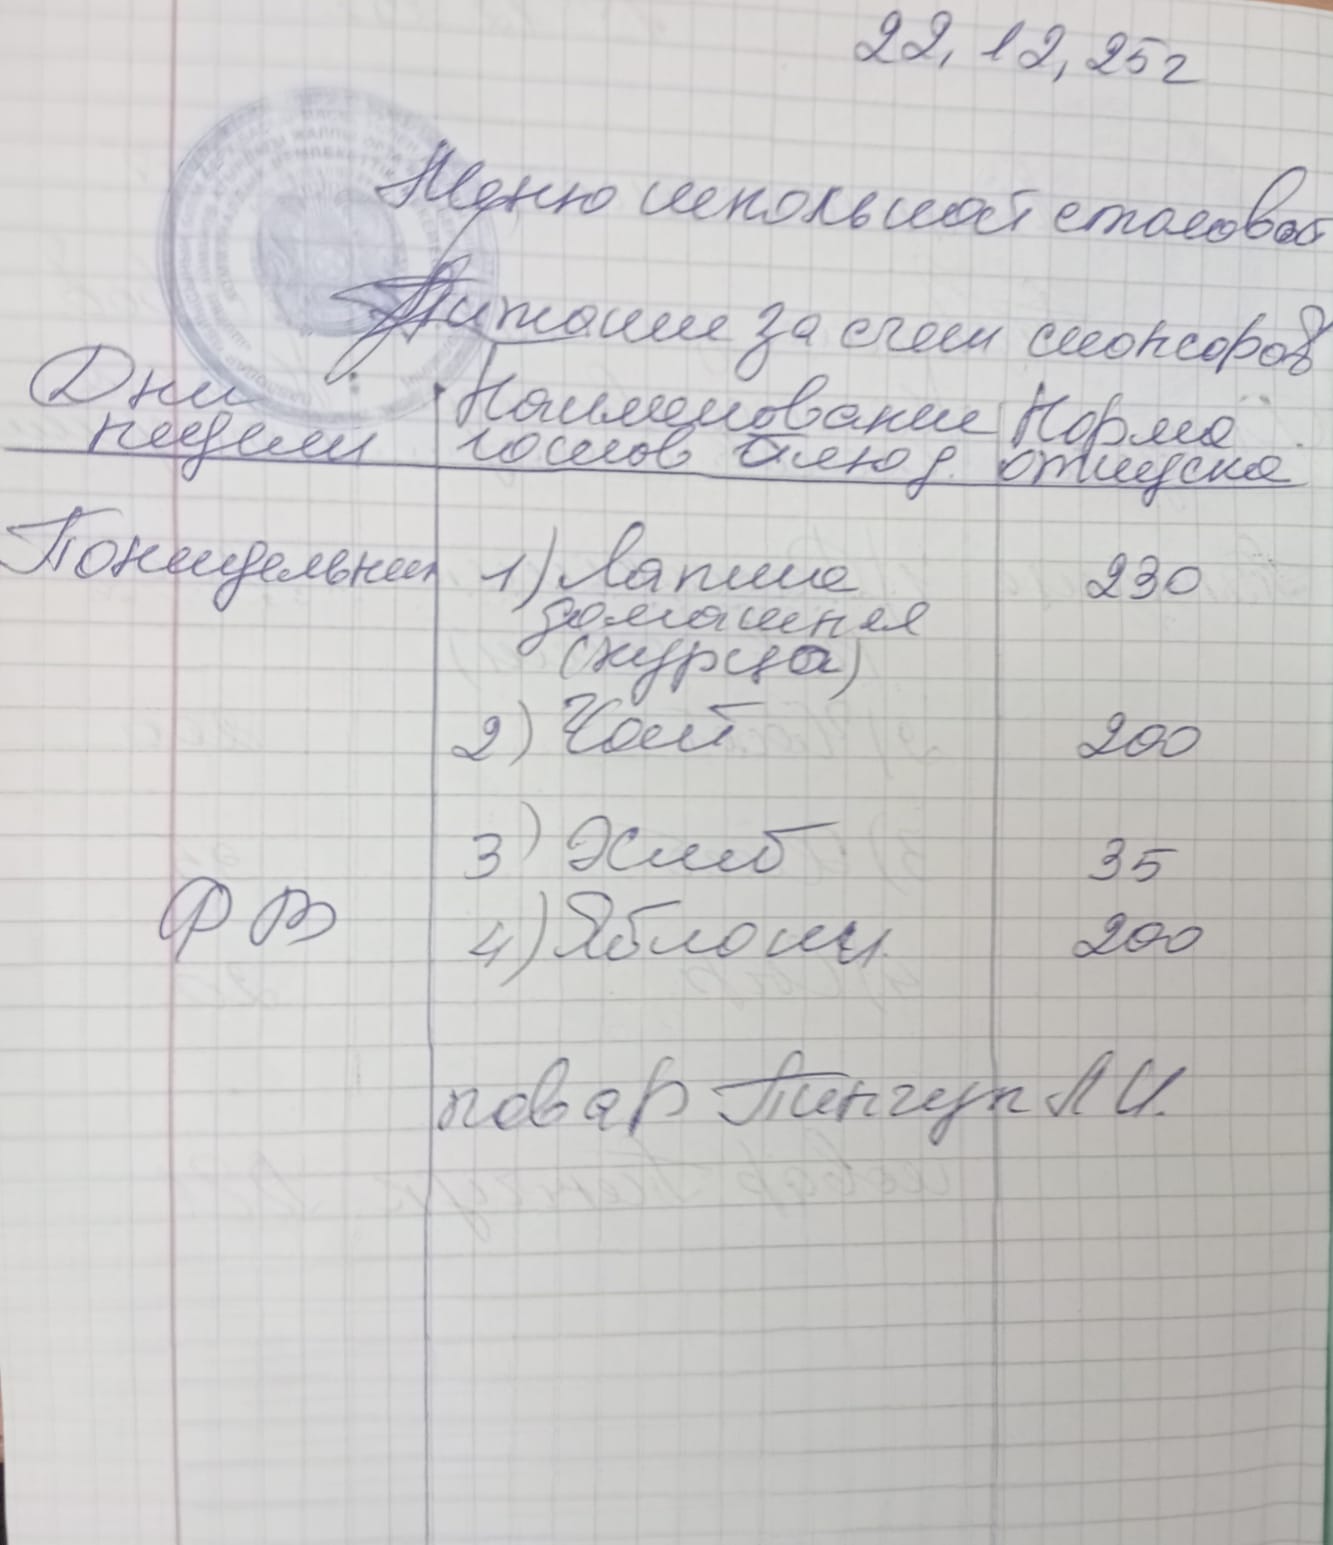 22, 12, 25г
Меню школьной столовой
Питание за счет спонсоров
Дни Наименование Норма
недели готов блюд. отпуска
Понедельник 1) Лапша 230
домашняя
(курица)
2) Чай 200
3) Хлеб 35
ФВ 4) Яблоки 200
повар Пинчук Л И.